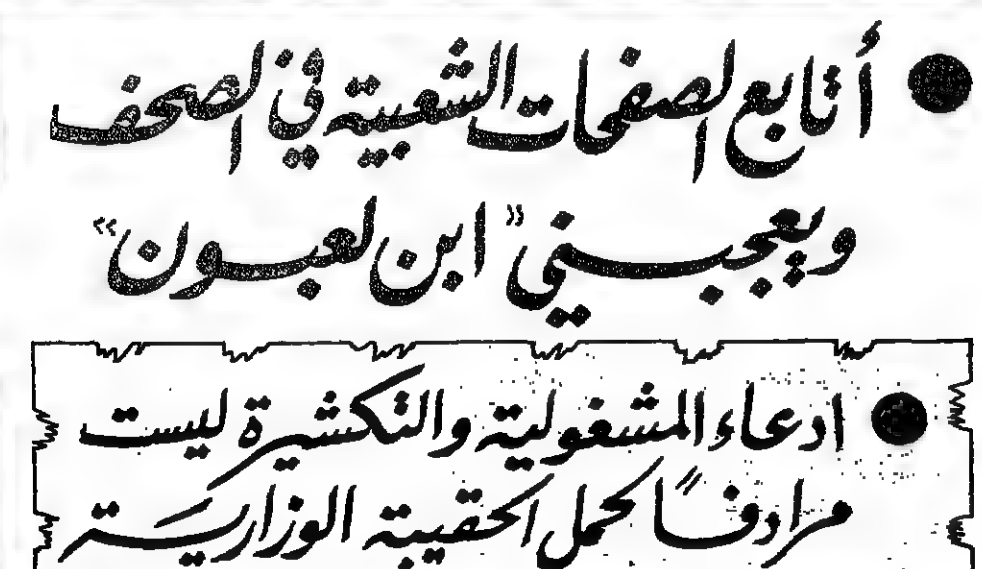 ● أتابع الصفحات الشعبية في الصحف
ويعجبني "ابن لعبون"
● ادعاء المشغولية والتكشيرة ليست
مرادفًا لحمل الحقيبة الوزارية